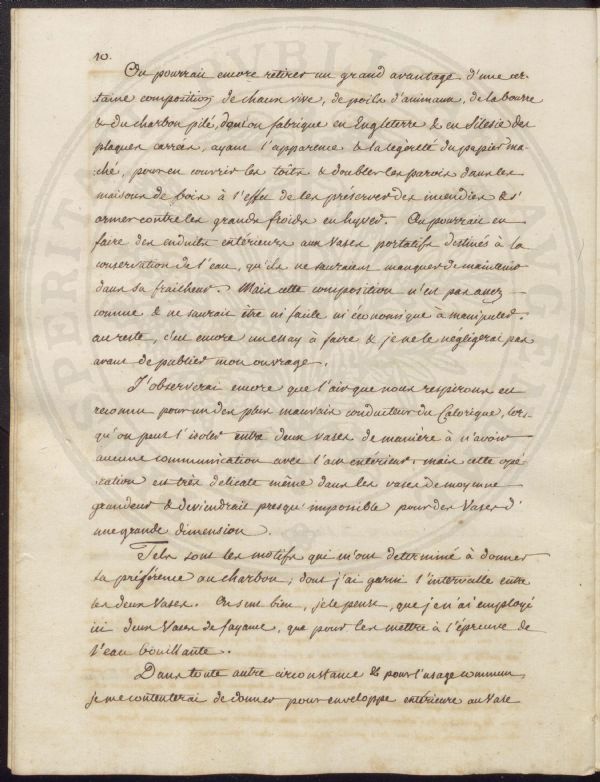 10.
On pourrait encore retirer un grand avantage d'une cer-
taine composition de chaux vive, de poils d'animaux, de la bourre
& du charbon pilé, dont on fabrique en Engleterre & en Silesie des
plaques carrées, ayant l'apparence & la legereté du papier ma-
ché, pour en couvrir les toits & doubler les parois dans les
maisons de bois à l'effet de les préserver des incendies & s'
armer contre les grands froids en hyver. On pourrait en
faire des enduits extérieurs aux Vases portatifs destinés à la
conservation de l'eau, qu'ils ne sauraient manquer de maintenir
dans sa fraicheur. Mais cette composition n'est pas assez
connue & ne saurait être ni facile ni économique à manipuler.
au reste, c'est encore un essay à faire & je ne le négligerai pas
avant de publier mon ouvrage.
J'observerai encore que l'air que nous respirons est
reconnu pour un des plus mauvais conducteur du Calorique, lors-
qu'on peut l'isoler entre deux vases de manière à n'avoir
aucune communication avec l'air extérieur. mais cette opé-
ration est très délicate même dans les vases de moyenne
grandeur & deviendrait presqu'impossible pour des Vases d'
une grande dimension.
Tels sont les motifs qui m'ont determiné à donner
la préférence au charbon, dont j'ai garni l'intervalle entre
les deux Vases. On sent bien, je le pense, que je n'ai employé
ici deux Vases de fayance, que pour les mettre à l'épreuve de
l'eau bouillante.
Dans toute autre circonstance & pour l'usage commun,
je me contenterai de donner pour enveloppe extérieure au Vase